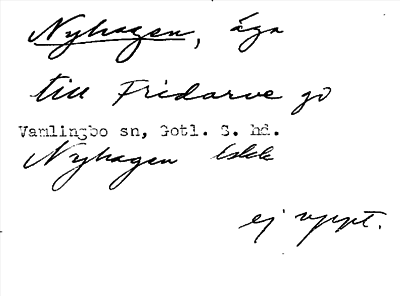 Nyhagen, äga
till Fridarve gd
Vamlingbo sn, Gotl. S. hd.
Nyhagen
ej uppt.